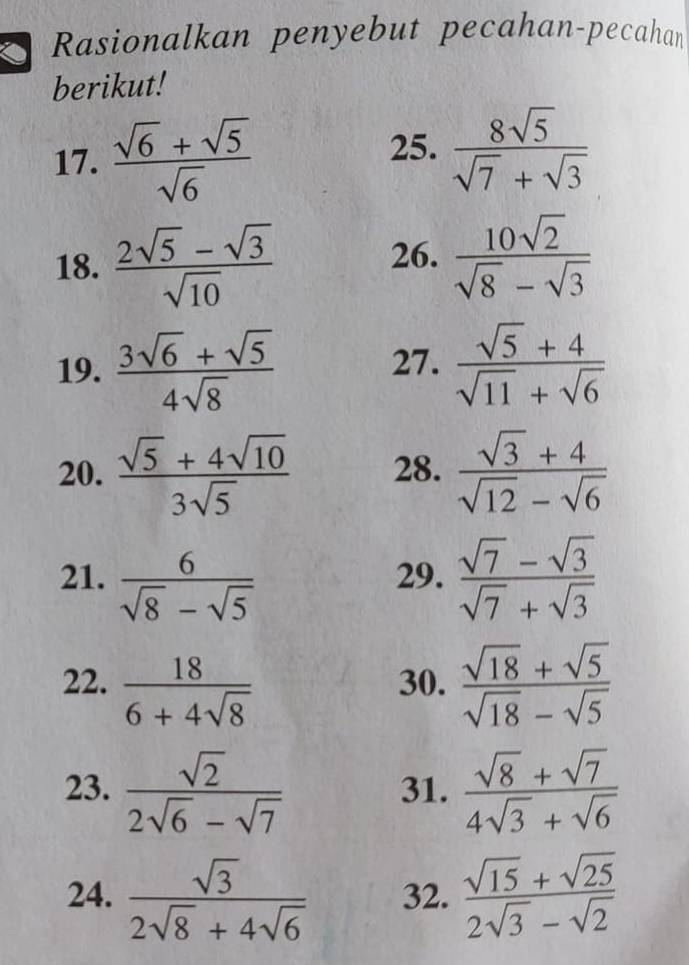 Rasionalkan penyebut pecahan-pecahan
berikut!
17. (√6 + √5)/√6
18. (2√5 − √3)/√10
19. (3√6 + √5)/(4√8)
20. (√5 + 4√10)/(3√5)
21. 6/(√8 − √5)
22. 18/(6 + 4√8)
23. √2/(2√6 − √7)
24. √3/(2√8 + 4√6)
25. 8√5/(√7 + √3)
26. 10√2/(√8 − √3)
27. (√5 + 4)/(√11 + √6)
28. (√3 + 4)/(√12 − √6)
29. (√7 − √3)/(√7 + √3)
30. (√18 + √5)/(√18 − √5)
31. (√8 + √7)/(4√3 + √6)
32. (√15 + √25)/(2√3 − √2)